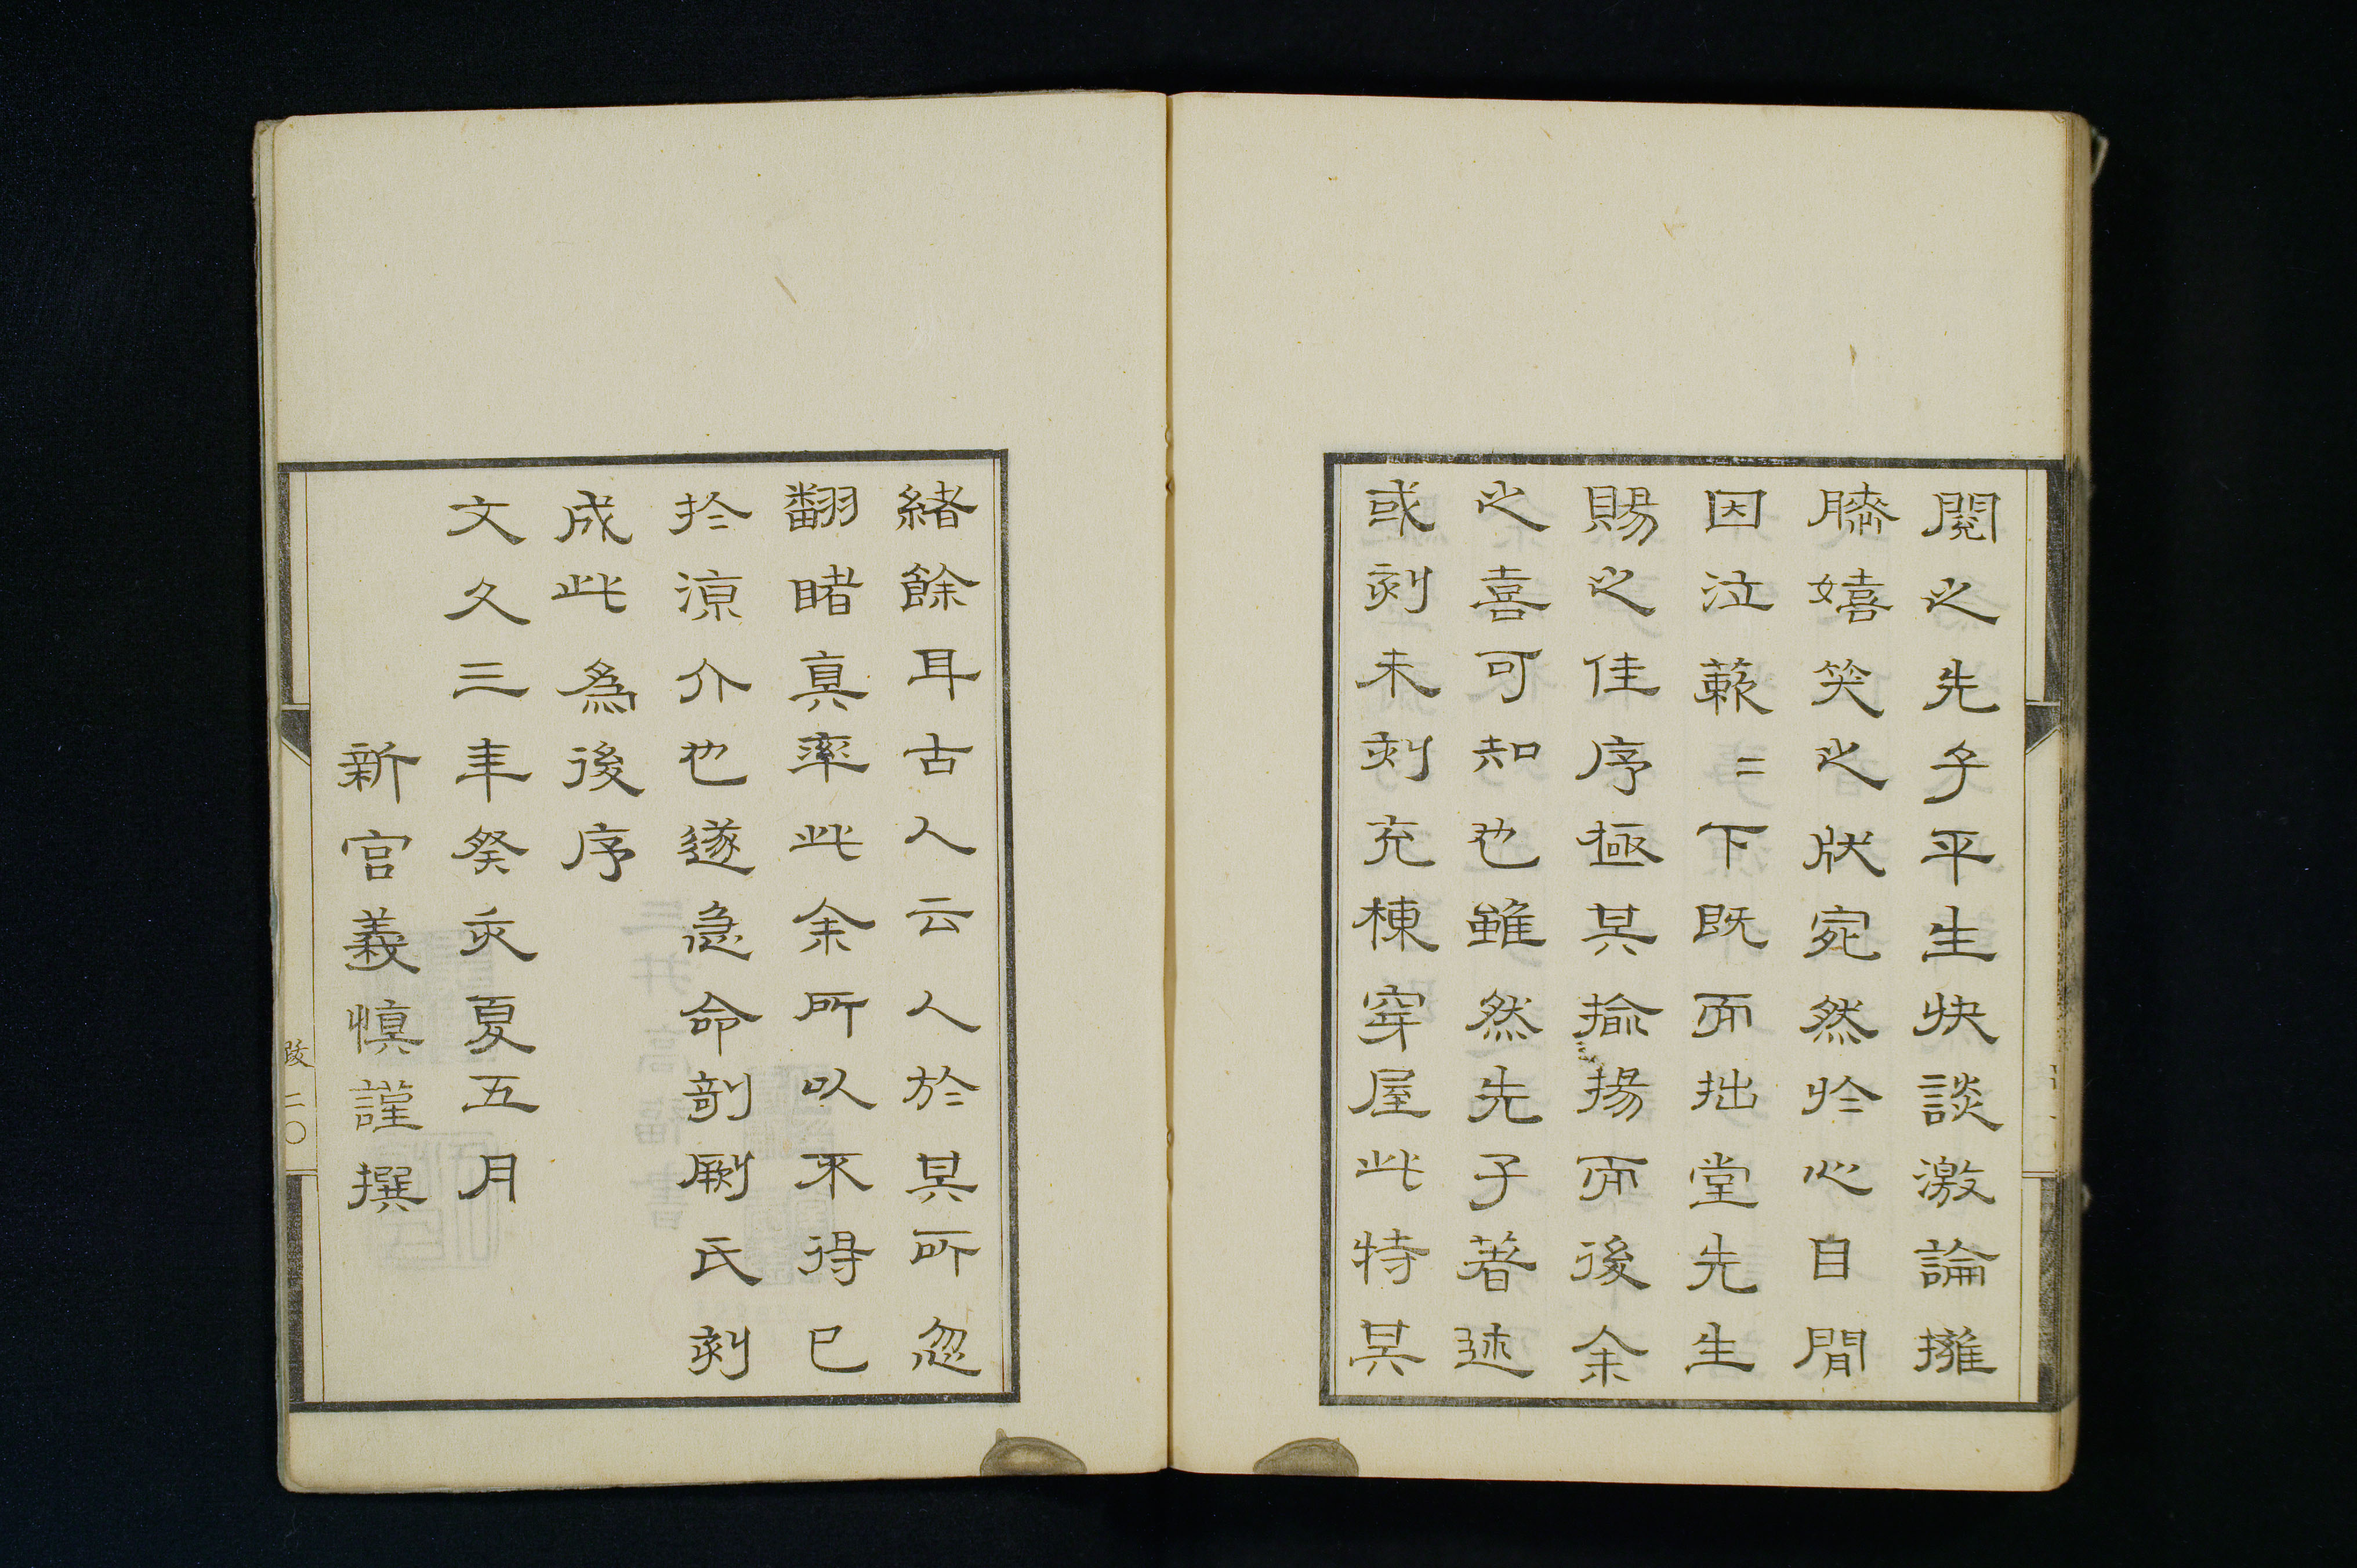 閱之先子平生快談激論擁
膝嬉笑之狀宛然於心目間
因泣蔌〻下既而拙堂先生
賜之佳序極其揄揚而後余
之喜可知也雖然先子著述
或刻未刻充棟穿屋此特其
緒餘耳古人云人於其所忽
翻睹真率此余所以不得已
於涼介也遂急命剞劂氏刻
成此為後序
文久三年癸亥夏五月
新宮義慎謹撰
跋 二〇